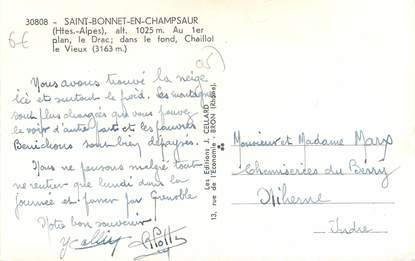 30808 - SAINT-BONNET-EN-CHAMPSAUR
(Htes.-Alpes), alt. 1025 m. Au 1er
plan, le Drac; dans le fond, Chaillol
le Vieux (3163 m.)
6€
05)
Nous avons trouvé la neige
ici et surtout le froid. Les montagnes
sont plus chargées que vous pouvez
le voir d'autre part et les pauvres
Benichons sont bien dépaysés.
Nous ne pensons malgré tout
ne rentrer que lundi dans la
journée et passer par Grenoble
Votre bon souvenir
Les Editions J. CELLARD
13, rue de l'Economie - BRON (Rhône)
Monsieur et Madame Marx
Chemiseries du Berry
Niherne
Indre